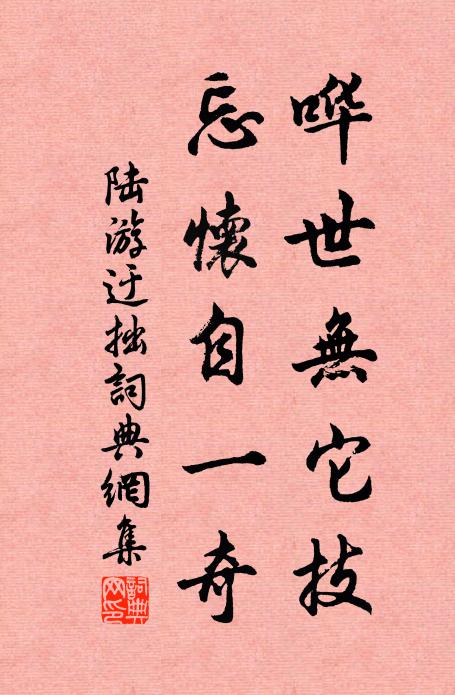 哗世無它技
忘懷自一奇
陆游迂拙詞典網集
詞典网印